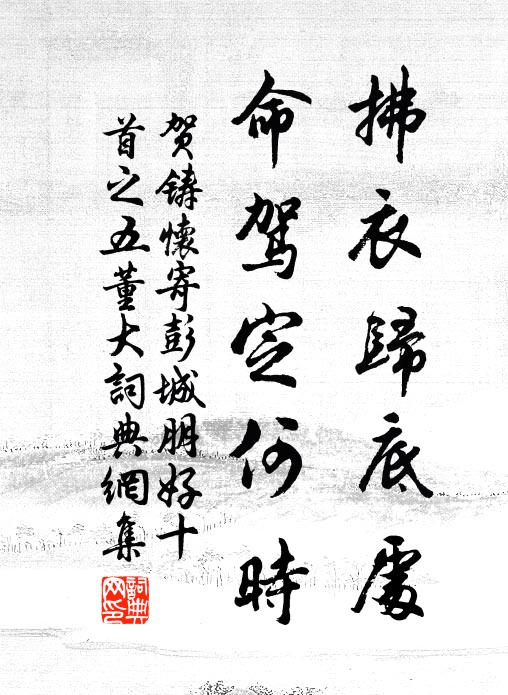 拂衣歸底處
命駕定何時
贺鑄懷寄彭城朋好十
首之五董大詞典網集
詞典
网印